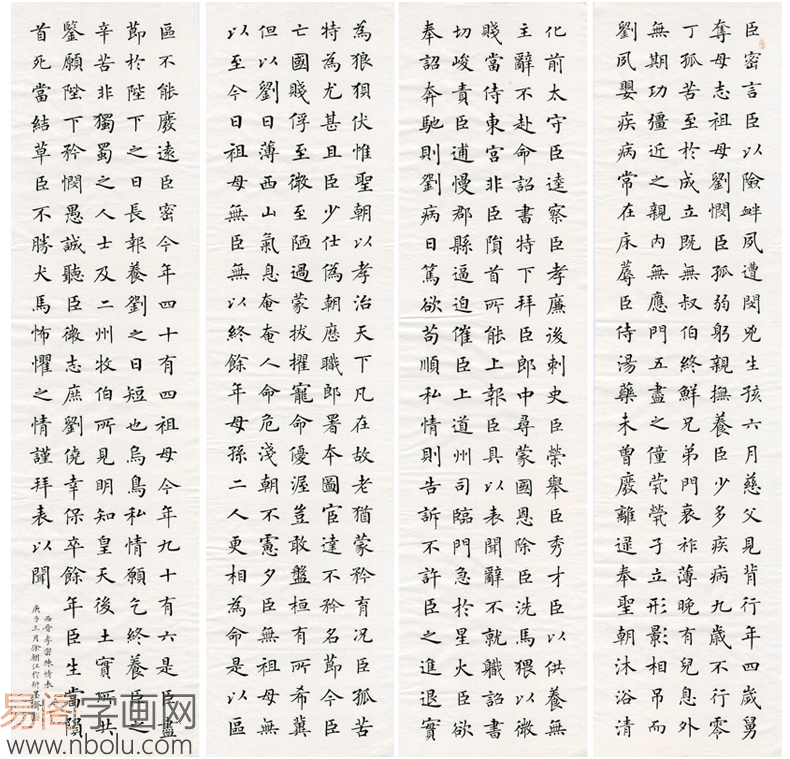 臣密言臣以險衅夙遭閔兇生孩六月慈父見背行年四歲舅
奪母志祖母劉憫臣孤弱躬親撫養臣少多疾病九歲不行零
丁孤苦至於成立既無叔伯終鮮兄弟門衰祚薄晚有兒息外
無期功彊近之親內無應門五盡之僮煢煢孑立形影相吊而
劉夙嬰疾病常在床蓐臣侍湯藥未曾廢離逮奉聖朝沐浴清
化前太守臣逵察臣孝廉後刺史臣榮舉臣秀才臣以供養無
主辭不赴命詔書特下拜臣郎中尋蒙國恩除臣洗馬猥以微
賤當侍東宮非臣隕首所能上報臣具以表聞辭不就職詔書
切峻責臣逋慢郡縣逼迫催臣上道州司臨門急於星火臣欲
奉詔奔馳則劉病日篤欲苟順私情則告訴不許臣之進退實
為狼狽伏惟聖朝以孝治天下凡在故老猶蒙矜育況臣孤苦
特為尤甚且臣少仕偽朝歷職郎署本圖宦達不矜名節今臣
亡國賤俘至微至陋過蒙拔擢寵命優渥豈敢盤桓有所希冀
但以劉日薄西山氣息奄奄人命危淺朝不慮夕臣無祖母無
以至今日祖母無臣無以終餘年母孫二人更相為命是以區
區不能廢遠臣密今年四十有四祖母今年九十有六是臣盡
節於陛下之日長報養劉之日短也烏鳥私情願乞終養臣之
辛苦非獨蜀之人士及二州牧伯所見明知皇天後土實所共
鑒願陛下矜憫愚誠聽臣微志庶劉僥幸保卒餘年臣生當隕
首死當結草臣不勝犬馬怖懼之情謹拜表以聞
西晉李密陳情表
庚子三月徐朝江於研墨齋
易阁字画网
www.nbolu.com